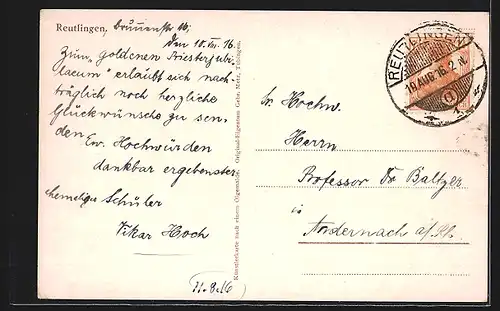 Reutlingen, Brunnenstr. 16,
Den 10. VIII. 16.
Zum "goldenen Priesterjubi-
laeum" erlaubt sich nach-
träglich noch herzliche
Glückwünsche zu sen-
den Ew. Hochwürden
dankbar ergebenster
ehemaliger Schüler
Vikar Hoch
11. 8. 16
Künstlerkarte nach einem Original-Eigentum Gebr. Metz, Tübingen.
REUTLINGEN
10 AUG 16. 2 N.
Sr. Hochw.
Herrn
Professor Dr Baltzer
in
Andernach a/Rh.